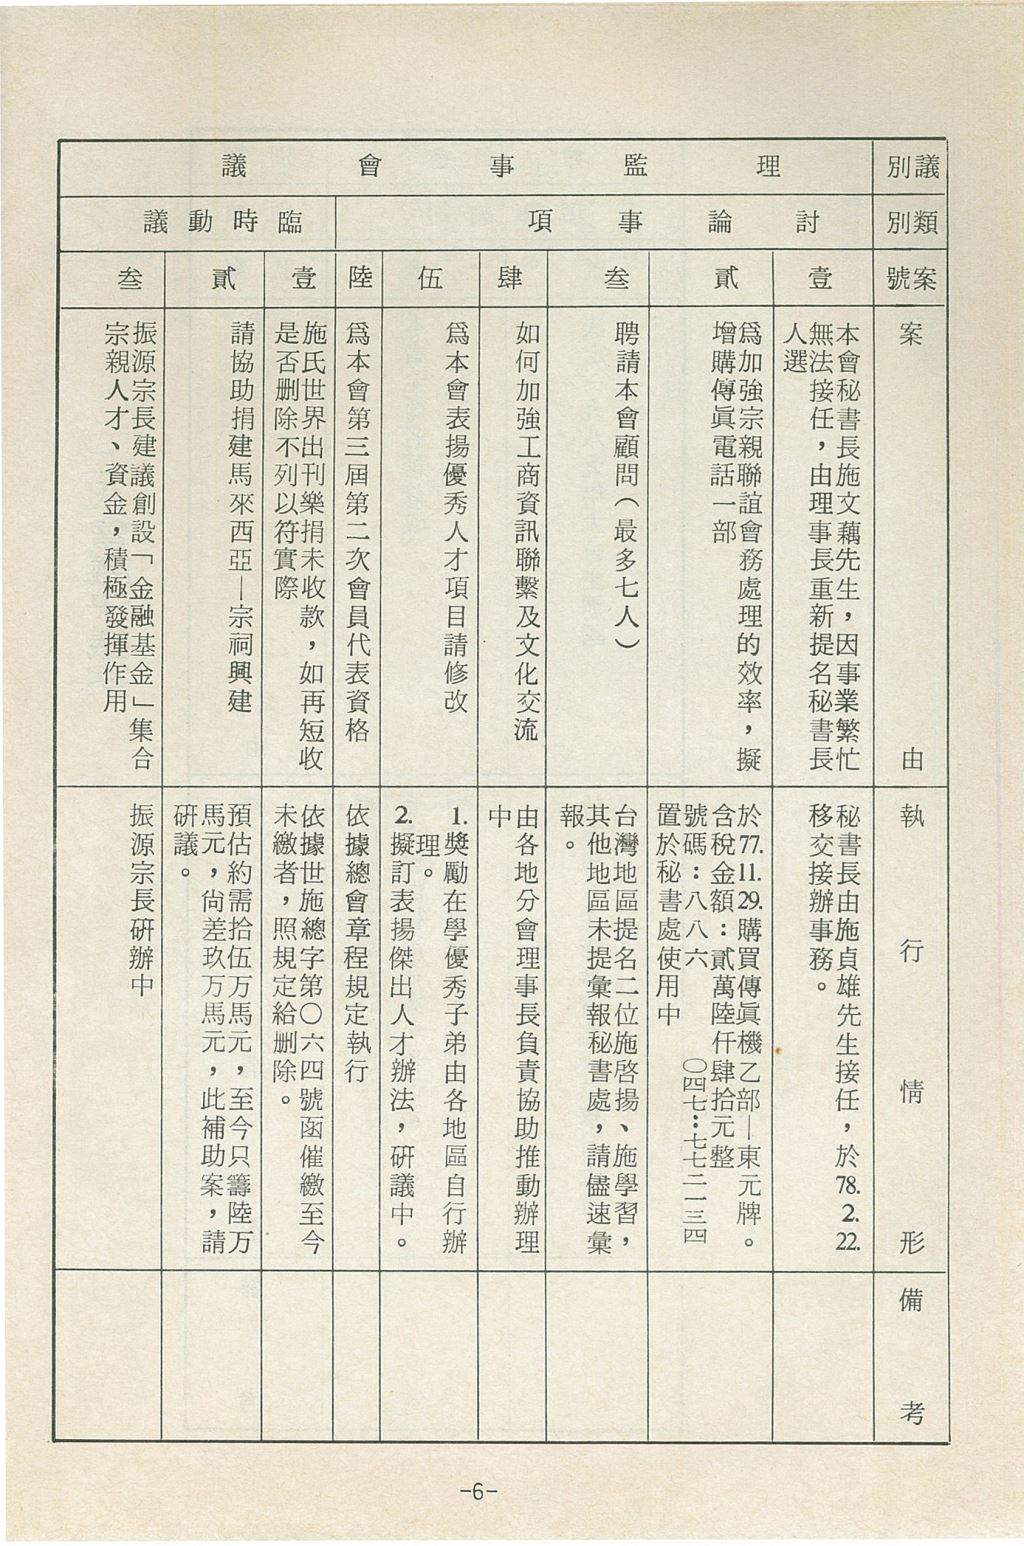 議別
理監事會議
類別
討論事項
臨時動議
案號
壹
貳
叁
肆
伍
陸
壹
貳
叁
案由
本會秘書長施文藕先生，因事業繁忙
無法接任，由理事長重新提名秘書長
人選
爲加強宗親聯誼會務處理的效率，擬
增購傳眞電話一部
聘請本會顧問（最多七人）
如何加強工商資訊聯繫及文化交流
爲本會表揚優秀人才項目請修改
爲本會第三屆第二次會員代表資格
施氏世界出刊樂捐未收款，如再短收
是否删除不列以符實際
請協助捐建馬來西亞—宗祠興建
振源宗長建議創設「金融基金」集合
宗親人才、資金，積極發揮作用
執行情形
秘書長由施貞雄先生接任，於78.2.22.
移交接辦事務。
於77.11.29.購買傳眞機乙部—東元牌。
含稅金額：貳萬陸仟肆拾元整
號碼：八八六　〇四七：七七二一三四
置於秘書處使用中
台灣地區提名二位施啓揚、施學習，
其他地區未提彙報秘書處，請儘速彙
報。
由各地分會理事長負責協助推動辦理
中
1.獎勵在學優秀子弟由各地區自行辦
理。
2.擬訂表揚傑出人才辦法，硏議中。
依據總會章程規定執行
依據世施總字第〇六四號函催繳至今
未繳者，照規定給删除。
預估約需拾伍万馬元，至今只籌陸万
馬元，尙差玖万馬元，此補助案，請
硏議。
振源宗長硏辦中
備考
-6-